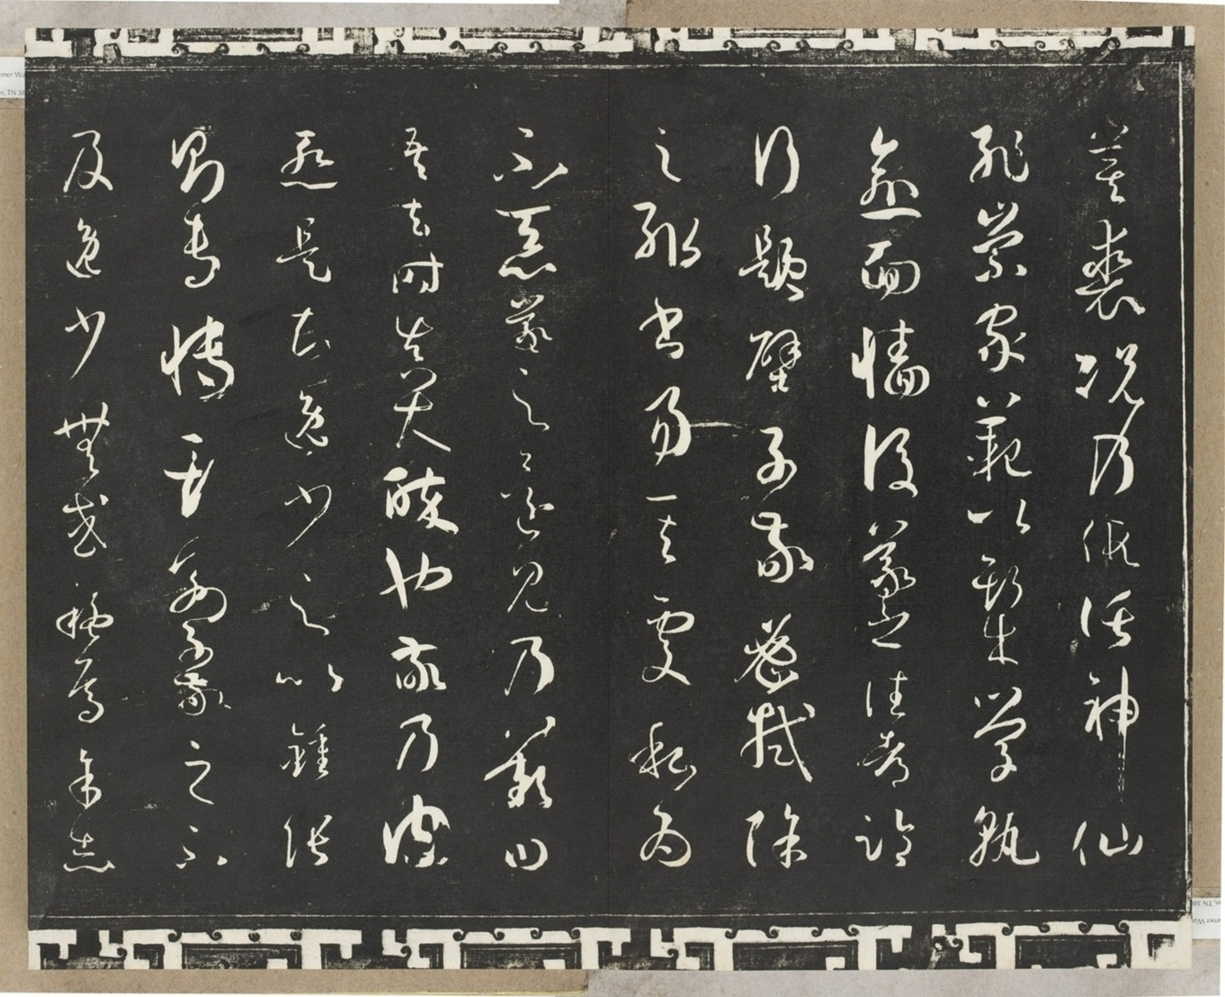 箕裘況乃假託神仙
恥崇家範以斯成學孰
愈面牆後羲之往都臨
行題壁子敬密拭除
之輒書易其處私為
不惡羲之還見乃歎曰
吾去時真大醉也敬乃內
慙是知逸少之比鍾張
則專博斯別子敬之不
及逸少無或疑焉余志